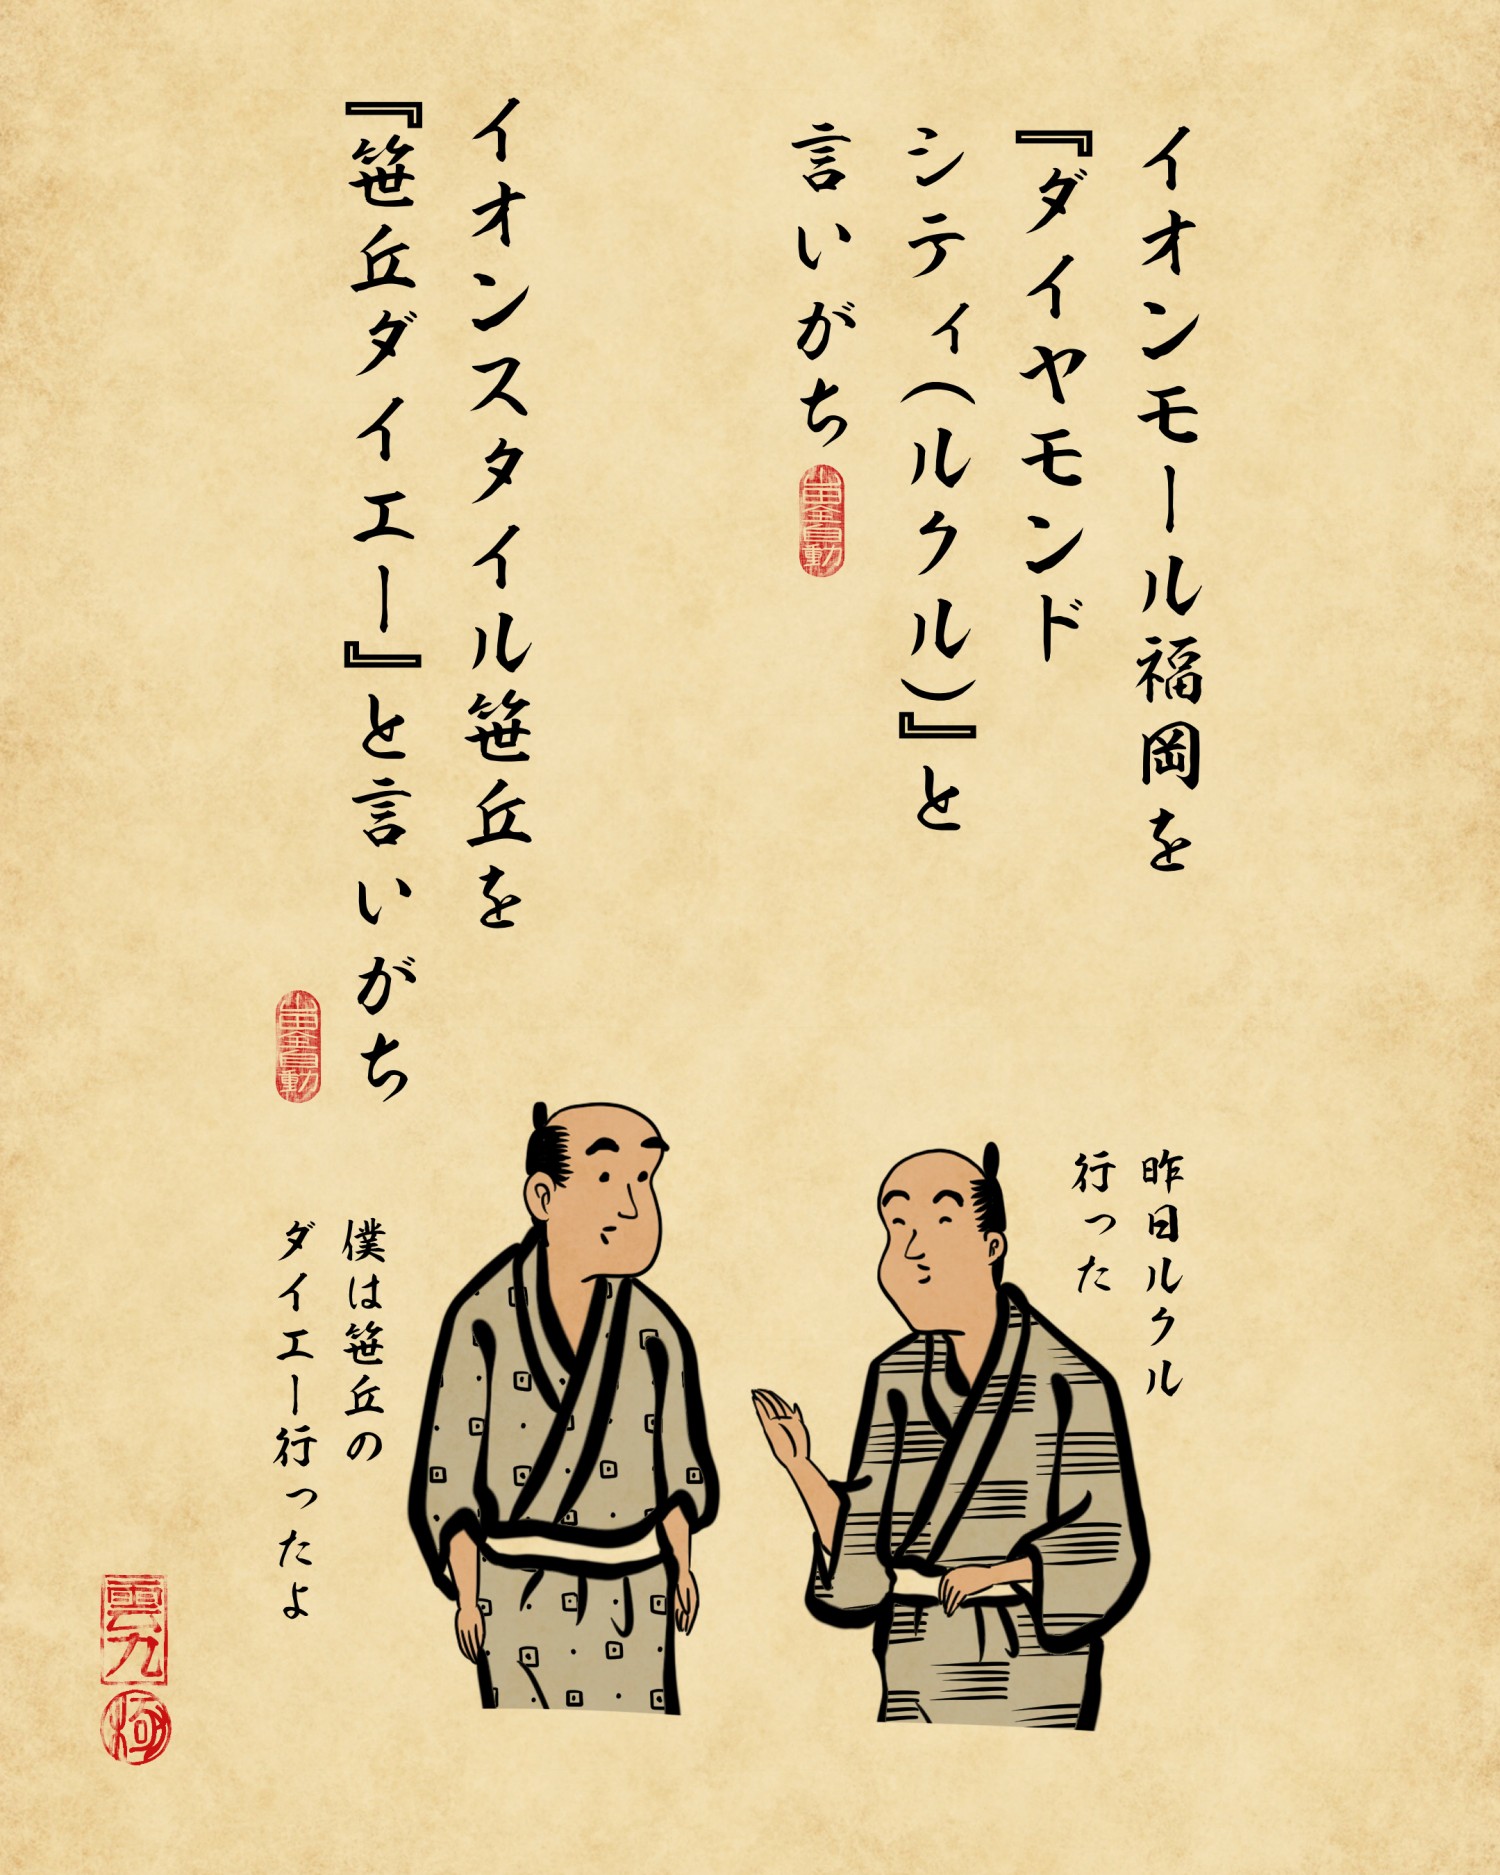 イオンモール福岡を
『ダイヤモンド
シティ(ルクル)』と
言いがち
イオンスタイル笹丘を
『笹丘ダイエー』と言いがち
昨日ルクル
行った
僕は笹丘の
ダイエー行ったよ